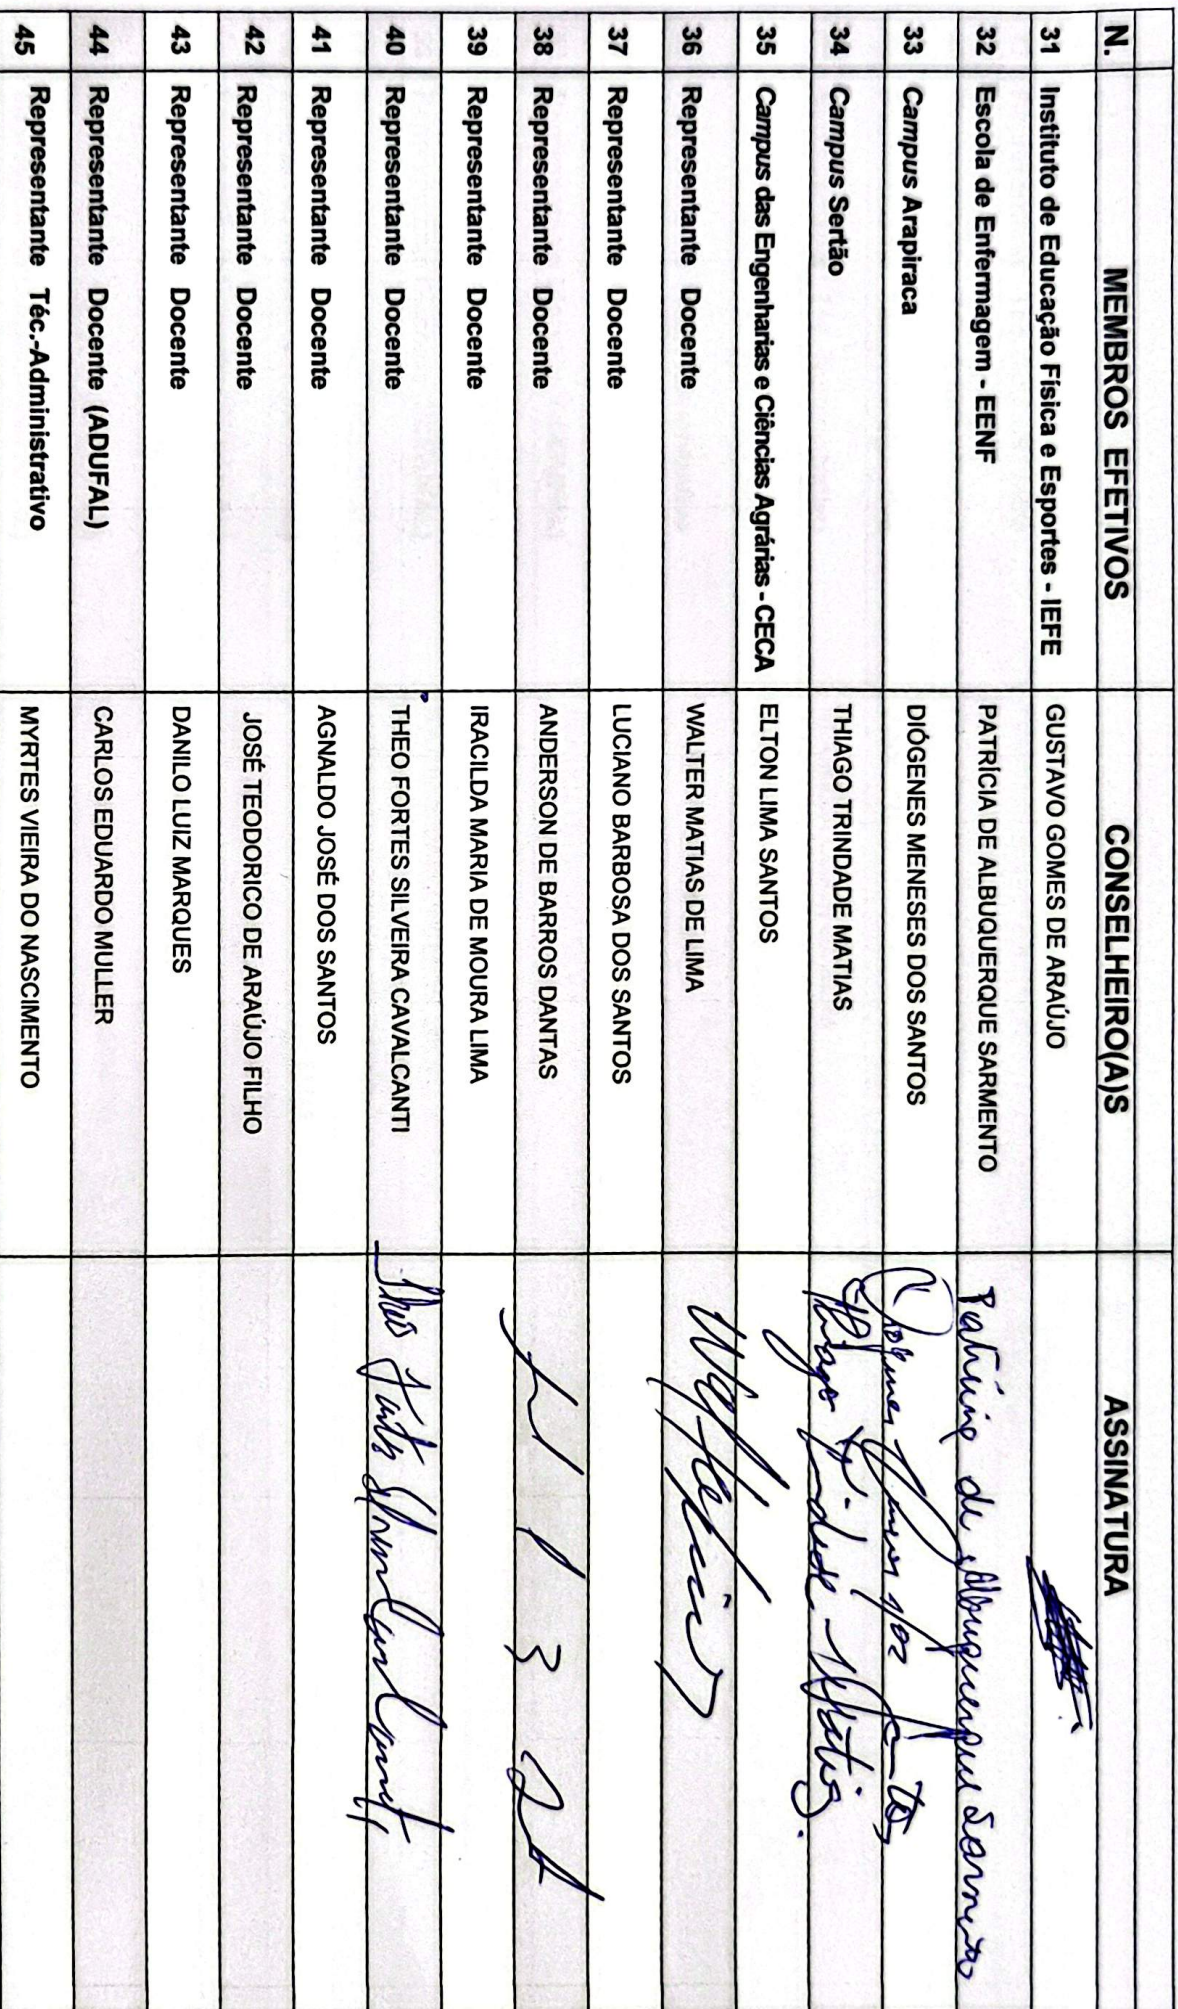 N. MEMBROS EFETIVOS CONSELHEIRO(A)S ASSINATURA
31 Instituto de Educação Física e Esportes - IEFE GUSTAVO GOMES DE ARAÚJO
32 Escola de Enfermagem - EENF PATRÍCIA DE ALBUQUERQUE SARMENTO Patrícia de Albuquerque Sarmento
33 Campus Arapiraca DIÓGENES MENESES DOS SANTOS
34 Campus Sertão THIAGO TRINDADE MATIAS Thiago Trindade Matias
35 Campus das Engenharias e Ciências Agrárias - CECA ELTON LIMA SANTOS
36 Representante Docente WALTER MATIAS DE LIMA
37 Representante Docente LUCIANO BARBOSA DOS SANTOS
38 Representante Docente ANDERSON DE BARROS DANTAS
39 Representante Docente IRACILDA MARIA DE MOURA LIMA
40 Representante Docente THEO FORTES SILVEIRA CAVALCANTI Theo Fortes
41 Representante Docente AGNALDO JOSÉ DOS SANTOS
42 Representante Docente JOSÉ TEODORICO DE ARAÚJO FILHO
43 Representante Docente DANILO LUIZ MARQUES
44 Representante Docente (ADUFAL) CARLOS EDUARDO MULLER
45 Representante Téc.-Administrativo MYRTES VIEIRA DO NASCIMENTO